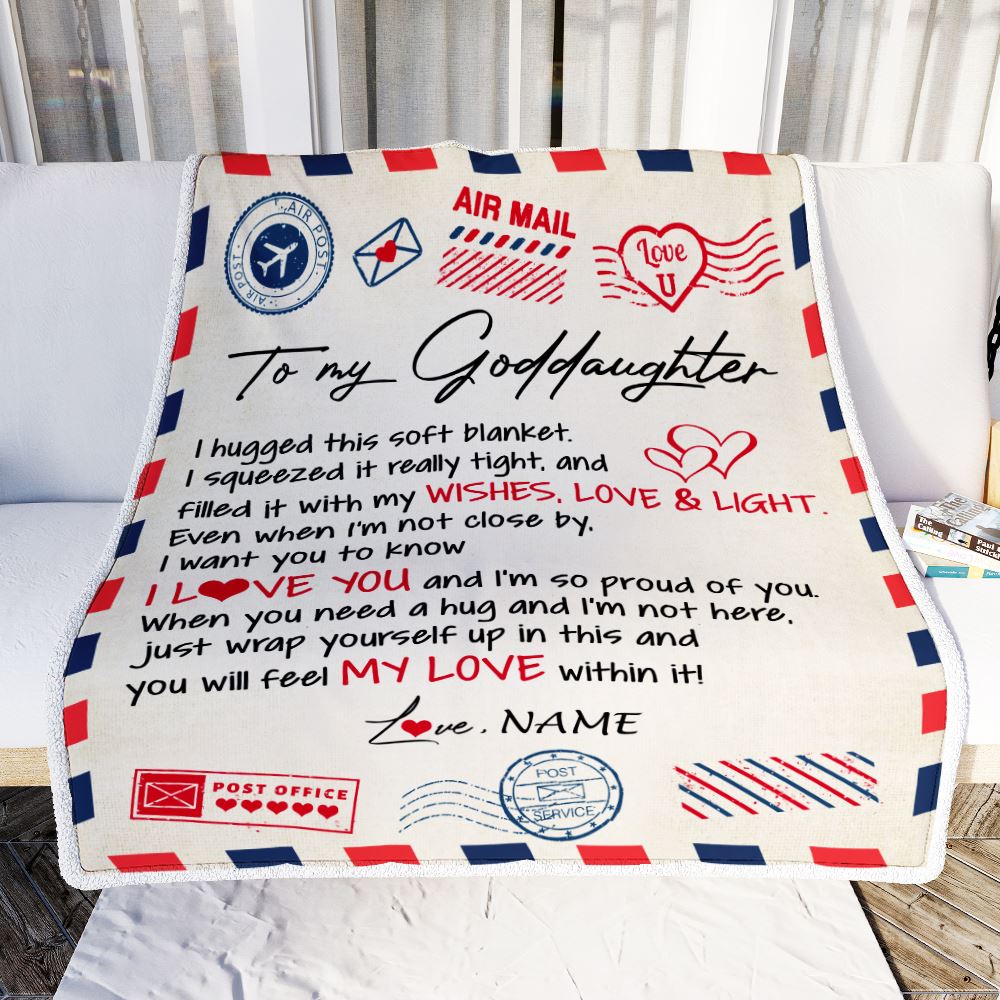 AIR POST
AIR POST
AIR MAIL
Love
U
To my Goddaughter
I hugged this soft blanket.
I squeezed it really tight, and
filled it with my WISHES, LOVE & LIGHT.
Even when I'm not close by,
I want you to know
I LOVE YOU and I'm so proud of you.
When you need a hug and I'm not here,
just wrap yourself up in this and
you will feel MY LOVE within it!
Love, NAME
POST OFFICE
POST
SERVICE
The
Calling
Paul